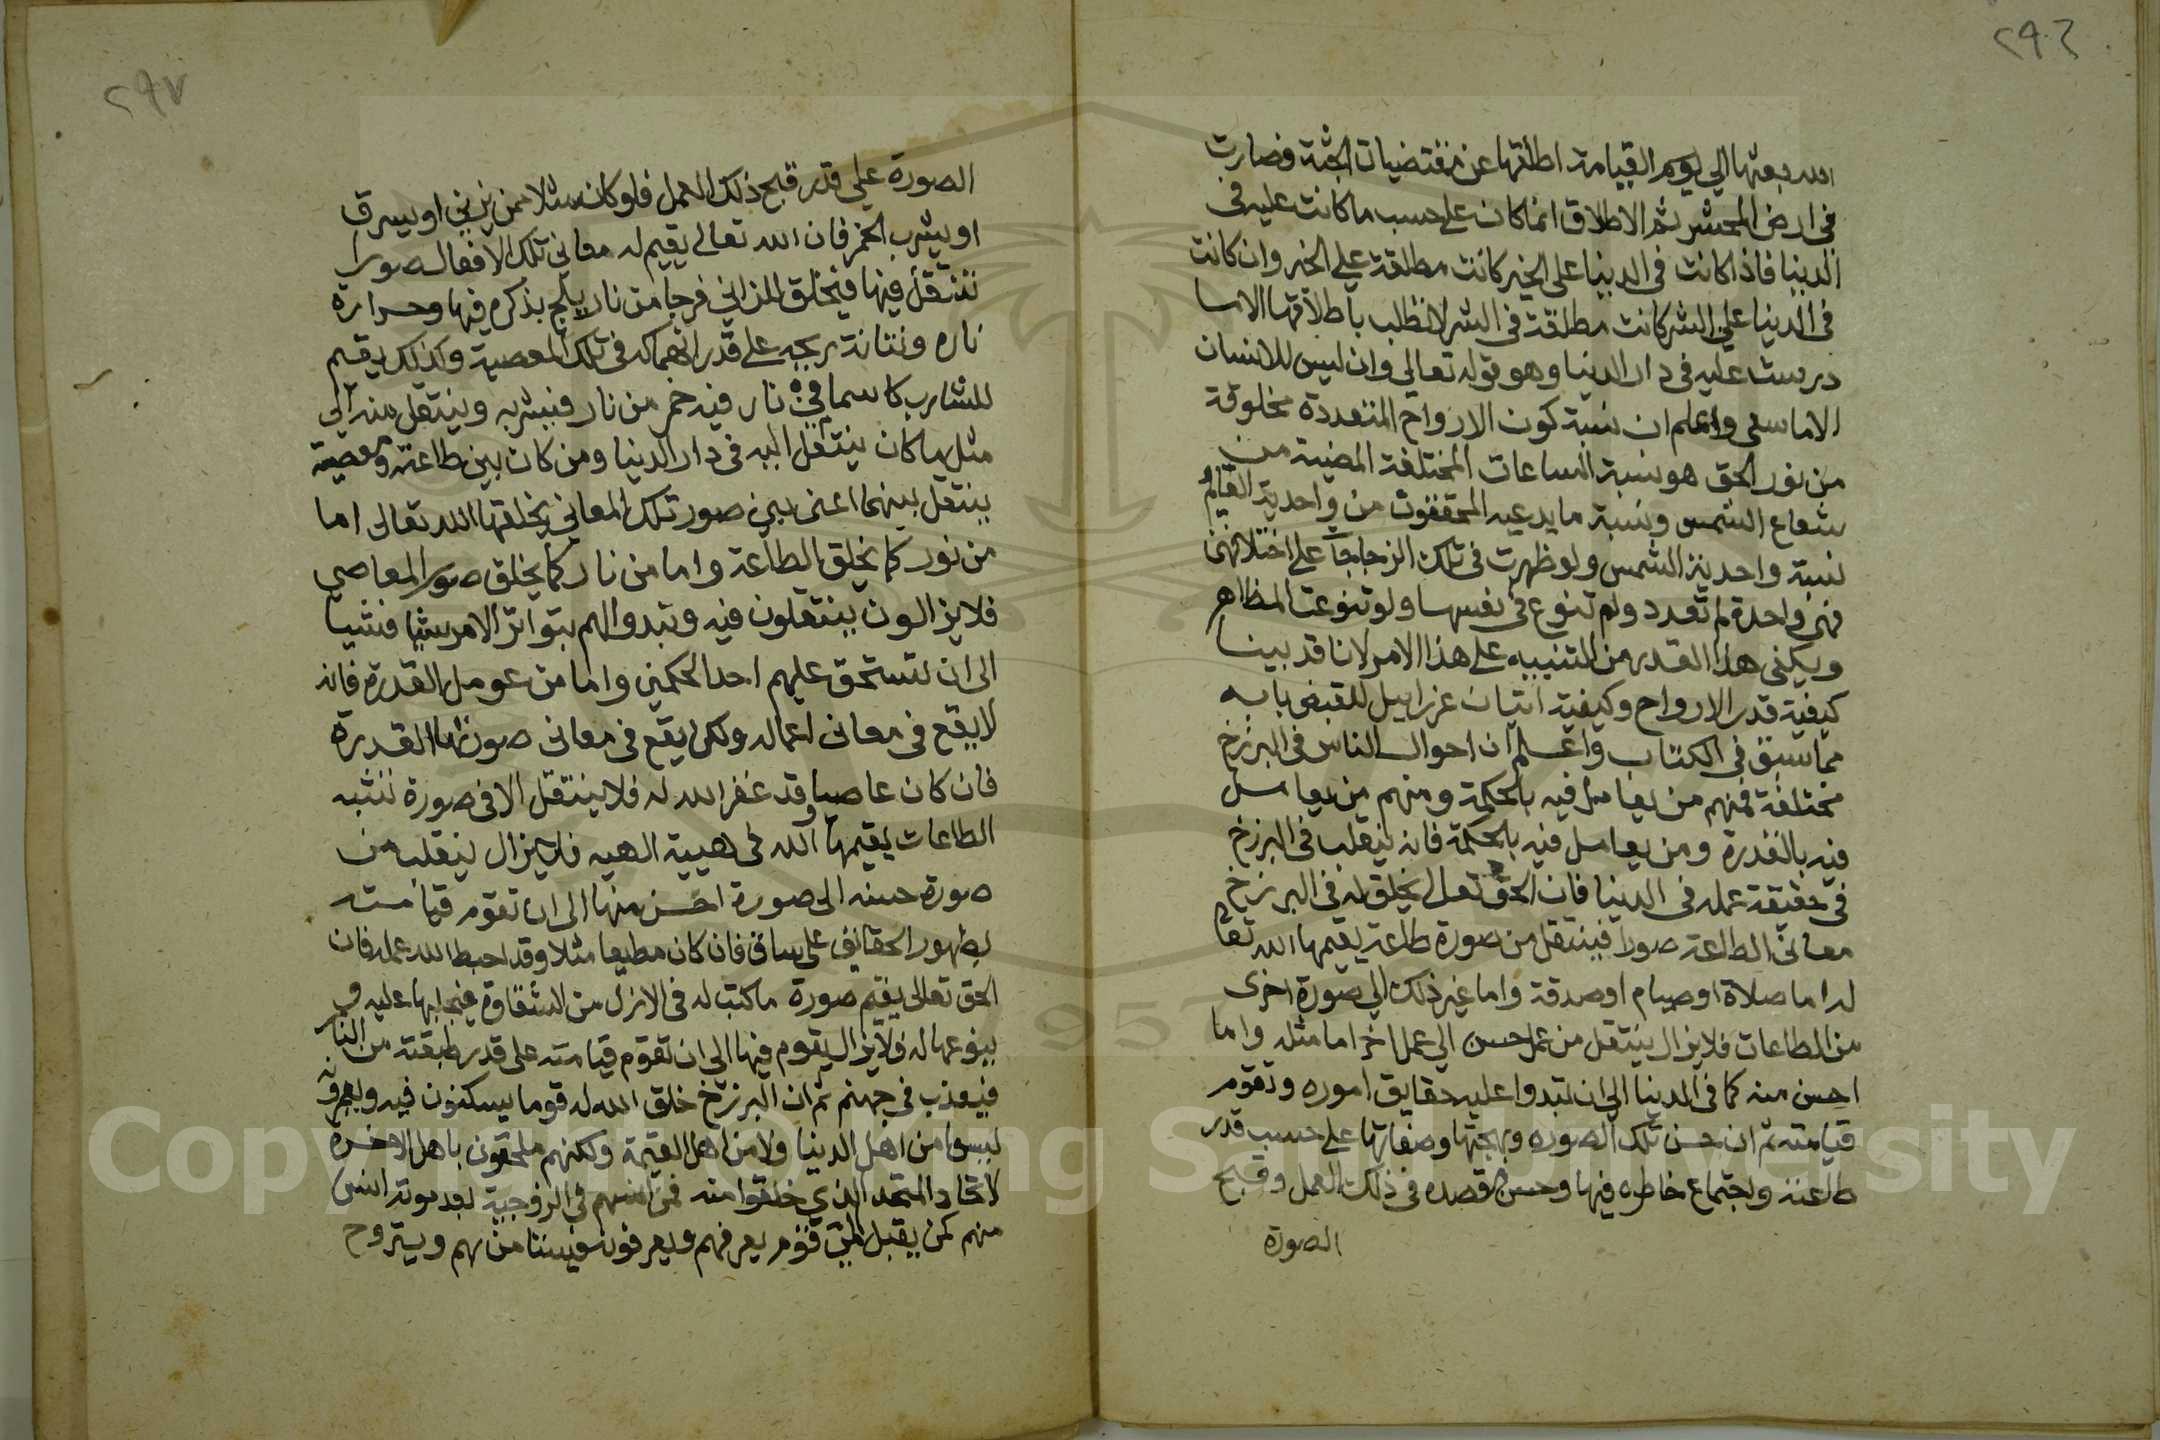 ٢٩٦
الله بعثها الي يوم القيامة اطلقها عن مقتضيات الجثة فصارت
في ارض المحشر ثم الاطلاق انما كان علي حسب ما كانت عليه في
الدنيا فاذا كانت في الدنيا علي الخير كانت مطلقة علي الخير وان كانت
في الدنيا علي الشر كانت مطلقة في الشر لا تطلب باطلاقها الاما
درست عليه في دار الدنيا وهو قوله تعالي وان ليس للانسان
الا ما سعي واعلم ان نسبة كون الارواح المتعددة مخلوقة
من نور الحق هو نسبة الساعات المختلفة المضيئة من
شعاع الشمس ونسبة ما يدعيه المحققون من واحدية العالم
نسبة واحدية الشمس ولو ظهرت في تلك الزجاجات علي اختلافهن
فهي واحدة لم تعدد ولم تنوع في نفسها ولو تنوعت المظاهر
ويكفي هذا القدر من التنبيه علي هذا الامر لانا قد بينا
كيفية قدر الارواح وكيفية اتيان عزرائيل للقبض بابه
مما سبق في الكتاب واعلم ان احوال الناس في البرزخ
مختلفة فمنهم من يعامل فيه بالحكمة ومنهم من يعامل
فيه بالقدرة ومن يعامل فيه بالحكمة فانه ينقلب في البرزخ
في حقيقة عمله في الدنيا فان الحق تعالي يخلق له في البرزخ
معاني الطاعة صورا فينتقل من صورة طاعة يقيمها الله تعالي
له اما صلاة او صيام او صدقة واما غير ذلك الي صورة اخري
من الطاعات فلا يزال ينتقل من عمل حسن الي عمل اخر اما مثله واما
احسن منه كما في الدنيا الي ان تبدوا عليه حقايق اموره وتقوم
قيامته ثم ان حسن تلك الصوره وبهجتها وصفاتها علي حسب قدر
طاعته واجتماع خاطره فيها وحسن قصده في ذلك العمل وقبح
الصورة
٢٩٧
الصورة علي قدر قبح ذلك العمل فلو كان مثلا ممن يزني او يسرق
او يشرب الخمر فان الله تعالي يقيم له معاني تلك الافعال صورا
تنتقل فيها فيخلق للزاني فرجا من نار يلج بذكره فيها وحرارة
ناره ونتانة ريحه علي قدر انهماكه في تلك المعصية وكذلك يقيم
للشارب كاسا من نار فيه خمر من نار فيشربه وينتقل منه الي
مثل ما كان ينتقل اليه في دار الدنيا ومن كان بين طاعة ومعصية
ينتقل بينهما اعني بين صور تلك المعاني يخلقها الله تعالي اما
من نور كما يخلق الطاعة واما من نار كما يخلق صور المعاصي
فلا يزالون ينتقلون فيه وتبدوا لهم بتواتر الامر شيا فشيا
الي ان تستحق عليهم احد الحكمين واما من عومل القدرة فانه
لا يقع في معاني اعماله ولكن يقع في معاني صورتها القدرة
فان كان عاصيا وقد غفر الله له فلا ينتقل الا في صورة تشبه
الطاعات يقيمها الله في هيية الهيه فلا يزال ينقلب من
صورة حسنه الي صورة احسن منها الي ان تقوم قيامته
بظهور الحقايق علي ساق فان كان مطيعا مثلا وقد احبط الله عمله فان
الحق تعالي يقيم صورة ما كتب له في الازل من الشقاوة فيجليها عليه و
ينوعها له ولا يزال يقوم فيها الي ان تقوم قيامته علي قدر طبقته من النار
فيعذب في جهنم ثم ان البرزخ خلق الله له قوما يسكنون فيه ويعمرونه
ليسوا من اهل الدنيا ولا من اهل القيمة ولكنهم ملحقون باهل الاخرة
لاتحاد المتحد الذي خلقوا منه فمن انسهم في الروحية بعد موته انس
منهم كمن يقبل الي قوم يعرفهم ويعرفونه فيستانس بهم ويتروح